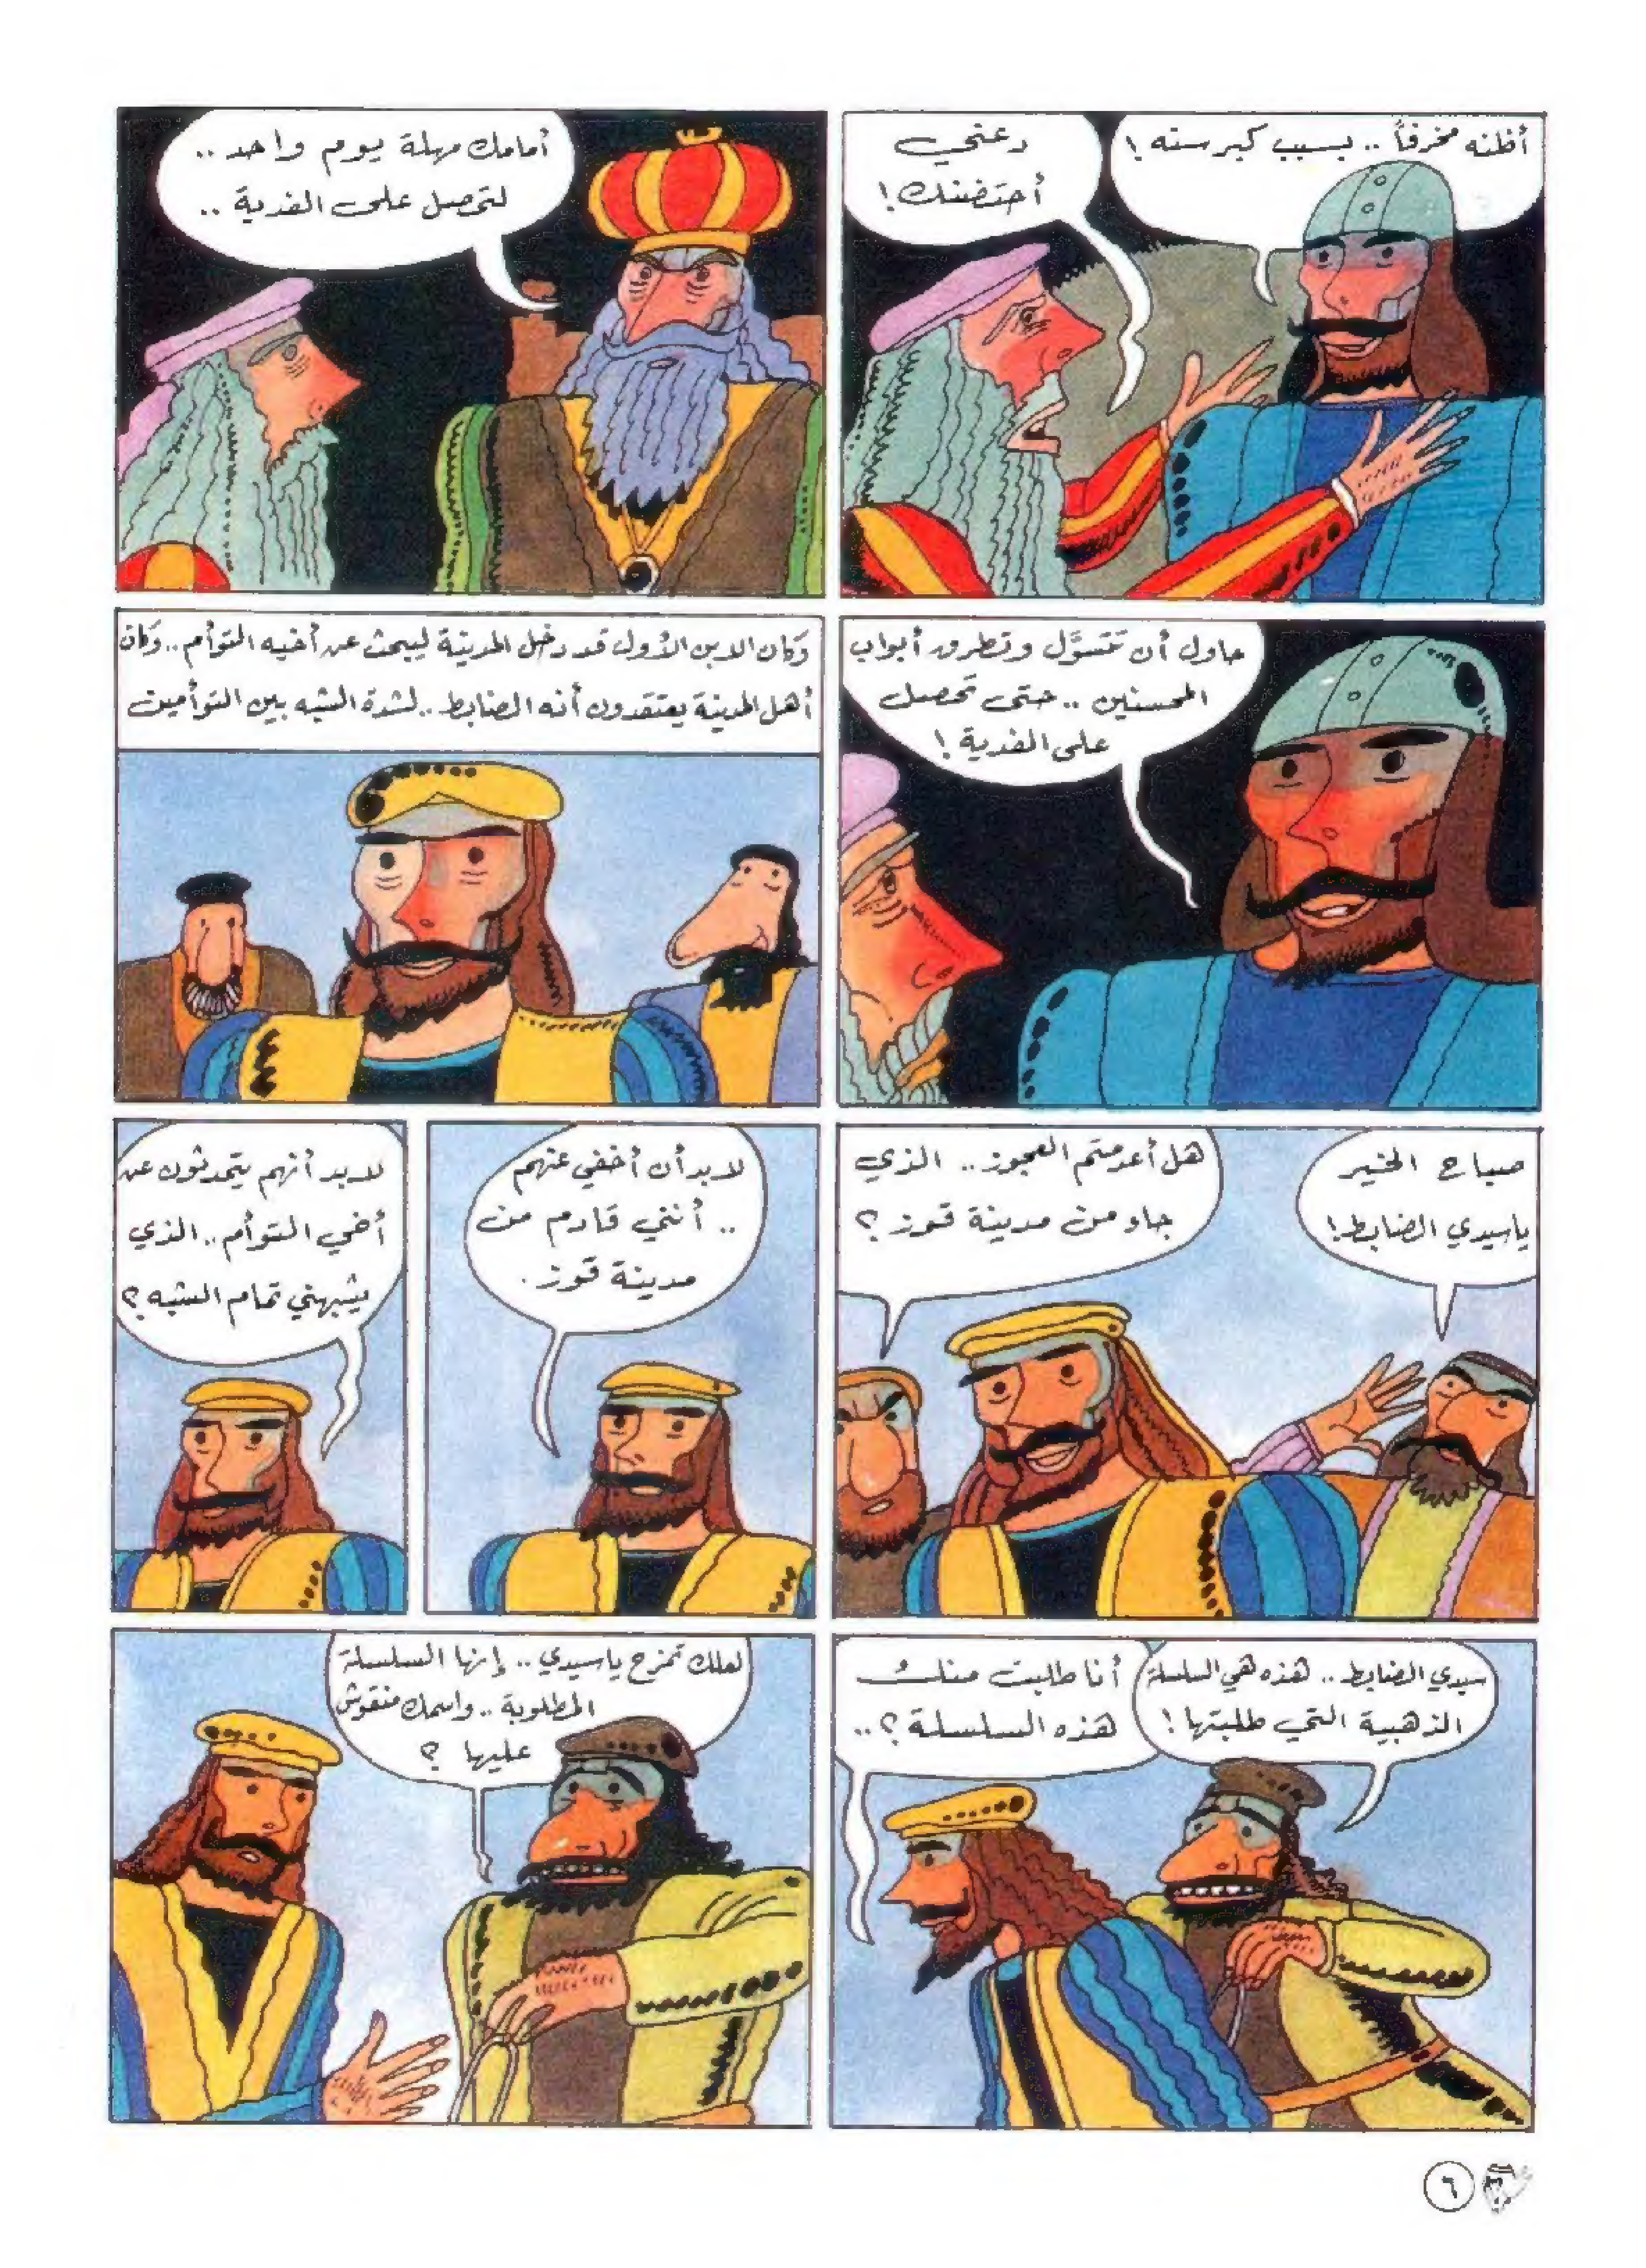 أظنه مخرفاً .. بسبب كبر سنه !
دعني
أحتضنك !
أمامك مهلة يوم واحد ..
لتحصل على الفدية ..
حاول أن تتسوَّل وتطرق أبواب
المحسنين .. حتى تحصل
على الفدية !
وَكان الابن الأول قد دخل المدينة ليبحث عن أخيه التوأم .. وَكان
أهل المدينة يعتقدون أنه الضابط .. لشدة الشبه بين التوأمين
صباح الخير
ياسيدي الضابط !
هل أعدمتم العجوز .. الذي
جاء من مدينة قوز ؟
لابد أن أخفي عنهم
.. أنني قادم من
مدينة قوز .
لابد أنهم يتحدثون عن
أخي التوأم .. الذي
يشبهني تمام الشبه ؟
سيدي الضابط .. هذه هي السلسلة
الذهبية التي طلبتها !
أنا طلبت منك
هذه السلسلة ؟ ..
لعلك تمزح ياسيدي .. إنها السلسلة
المطلوبة .. واسمك منقوش
عليها ؟
٦